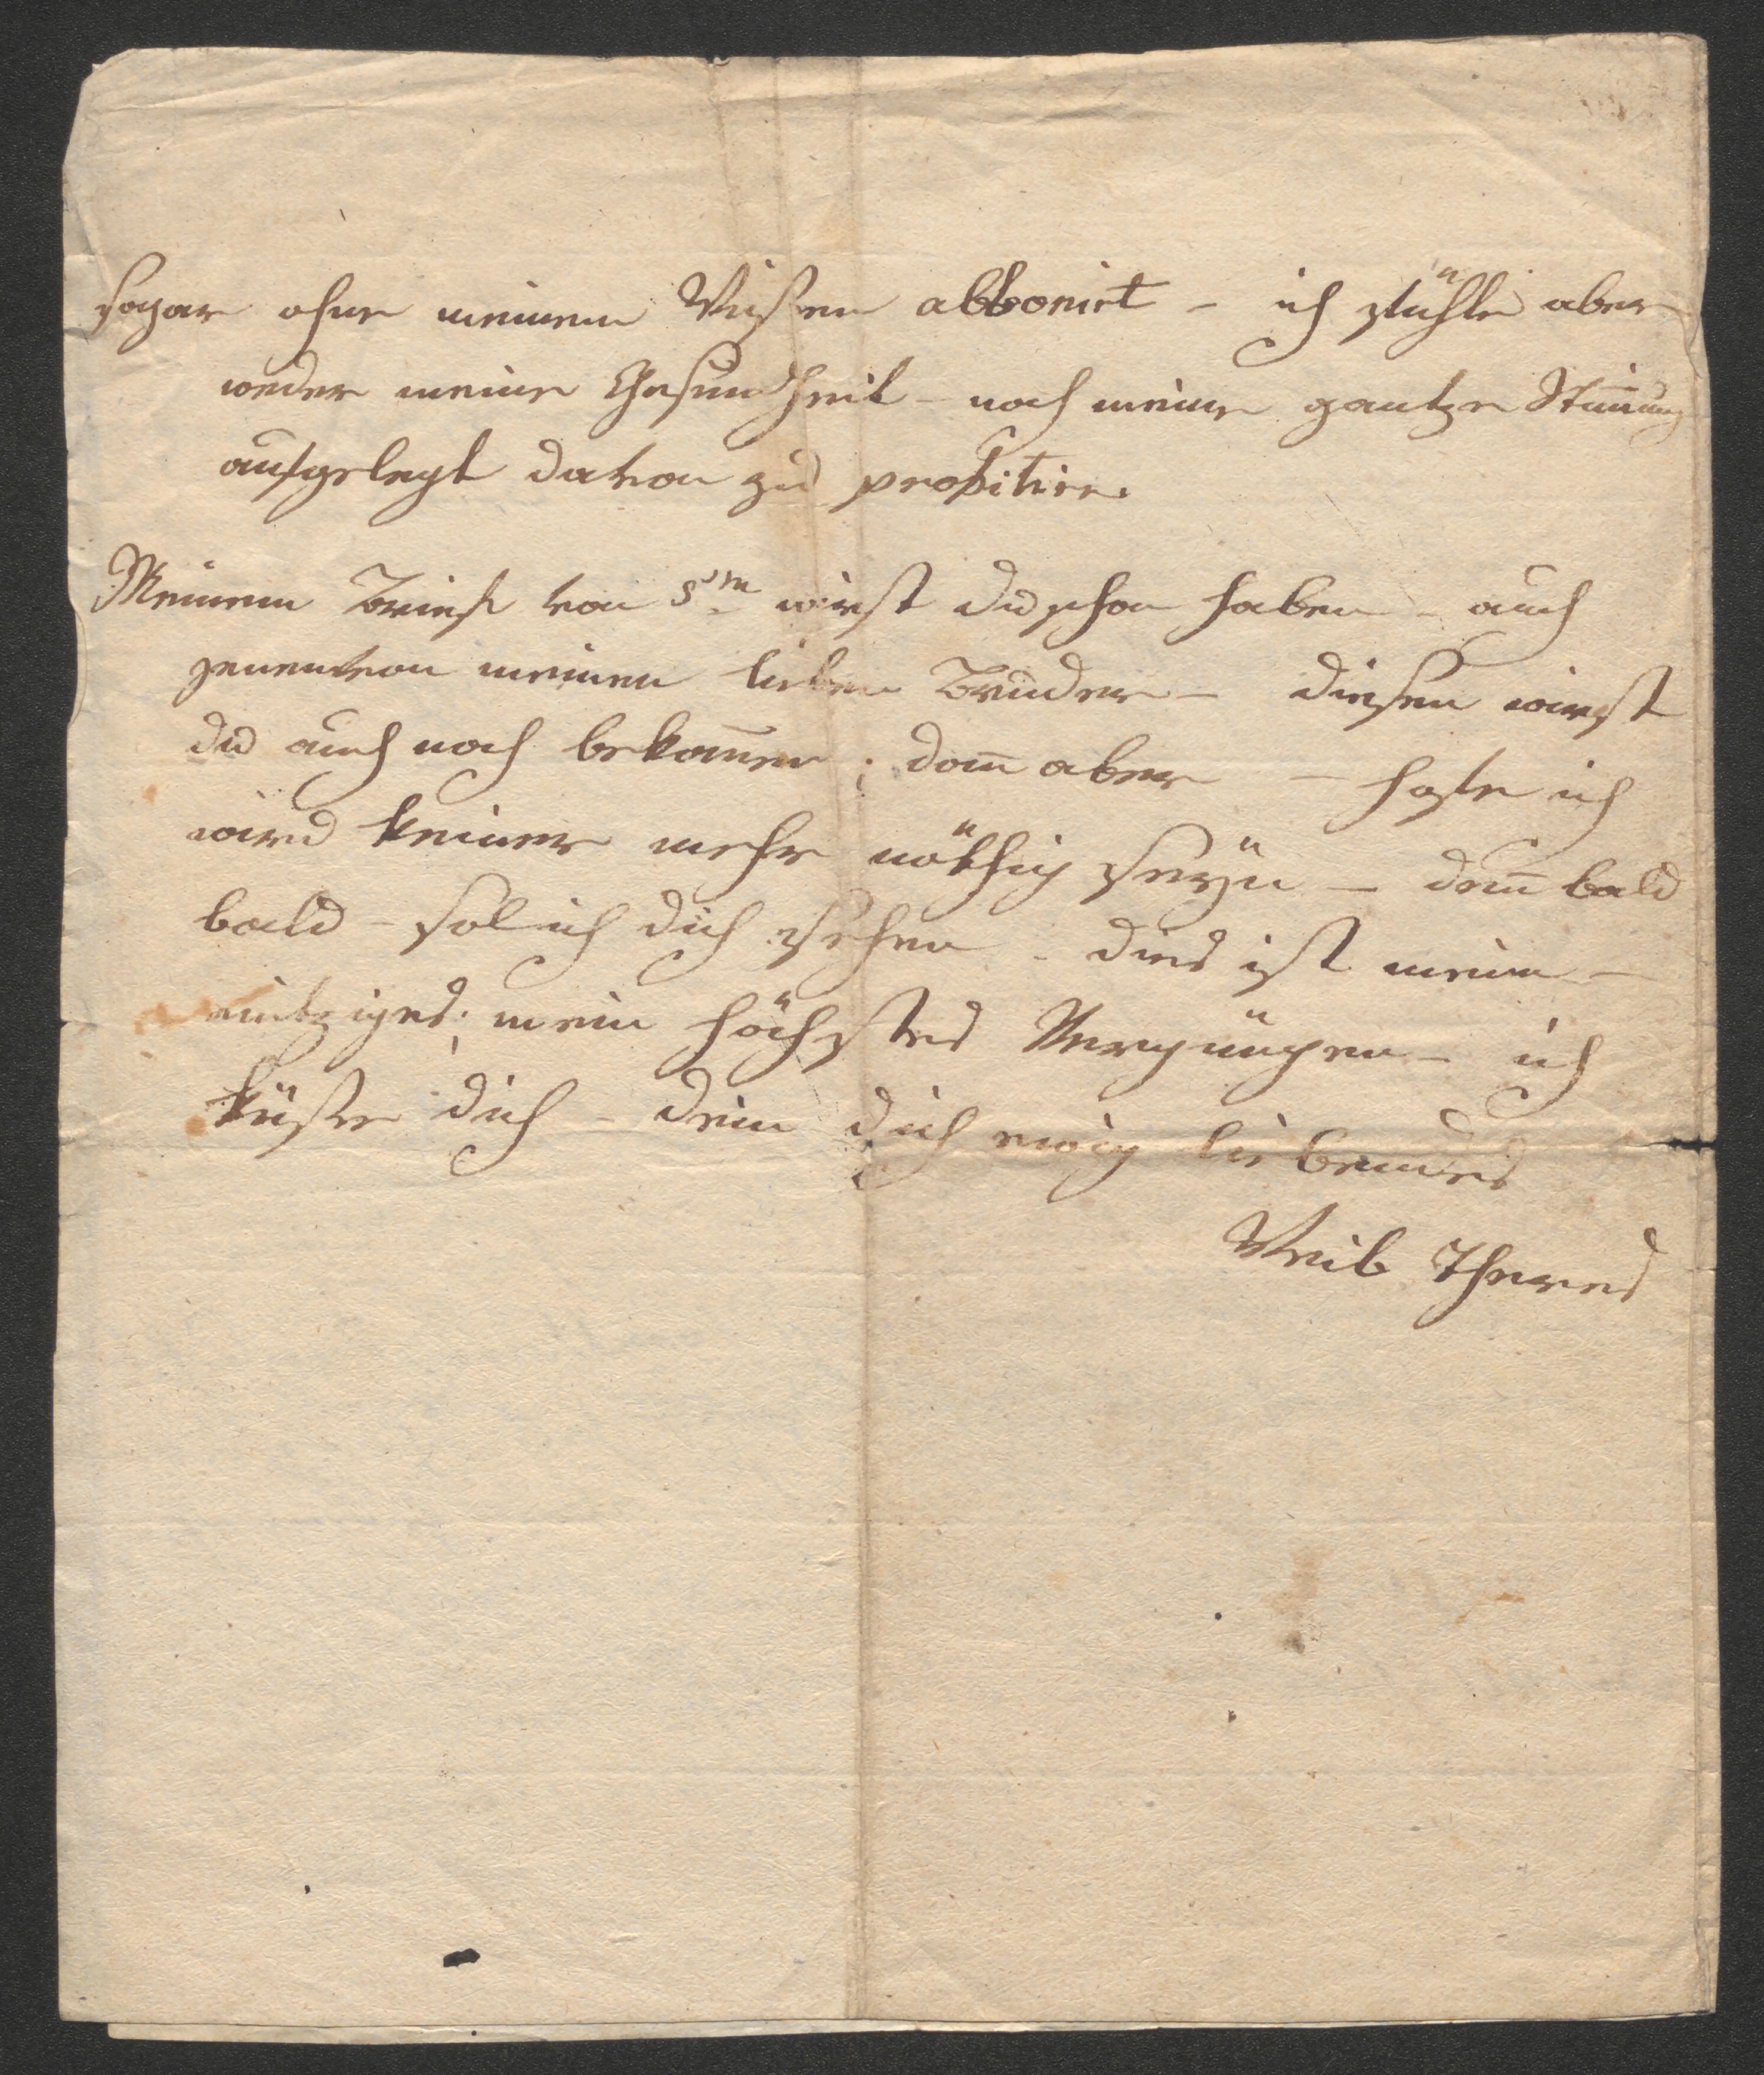 sogar ohne meinem Wißen abbonirt – ich fühle aber
weder meine Gesundheit – noch meine gantze Stim̄ung
aufgelegt davon zu profitire.
Meinem Brief von 8<sup>m</sup> wirst du schon haben – auch
jenen von meinen lieben Bruder – diesen wirst
du auch noch bekom̄en; dan̄ aber – hofe ich
wird keiner mehr nöthig seÿn – den̄ bald
bald – sol ich dich sehen – dies ist mein –
eintziges; mein höchstes Vergnügen – ich
küße dich – dein dich ewig liebendes
Weib Theres